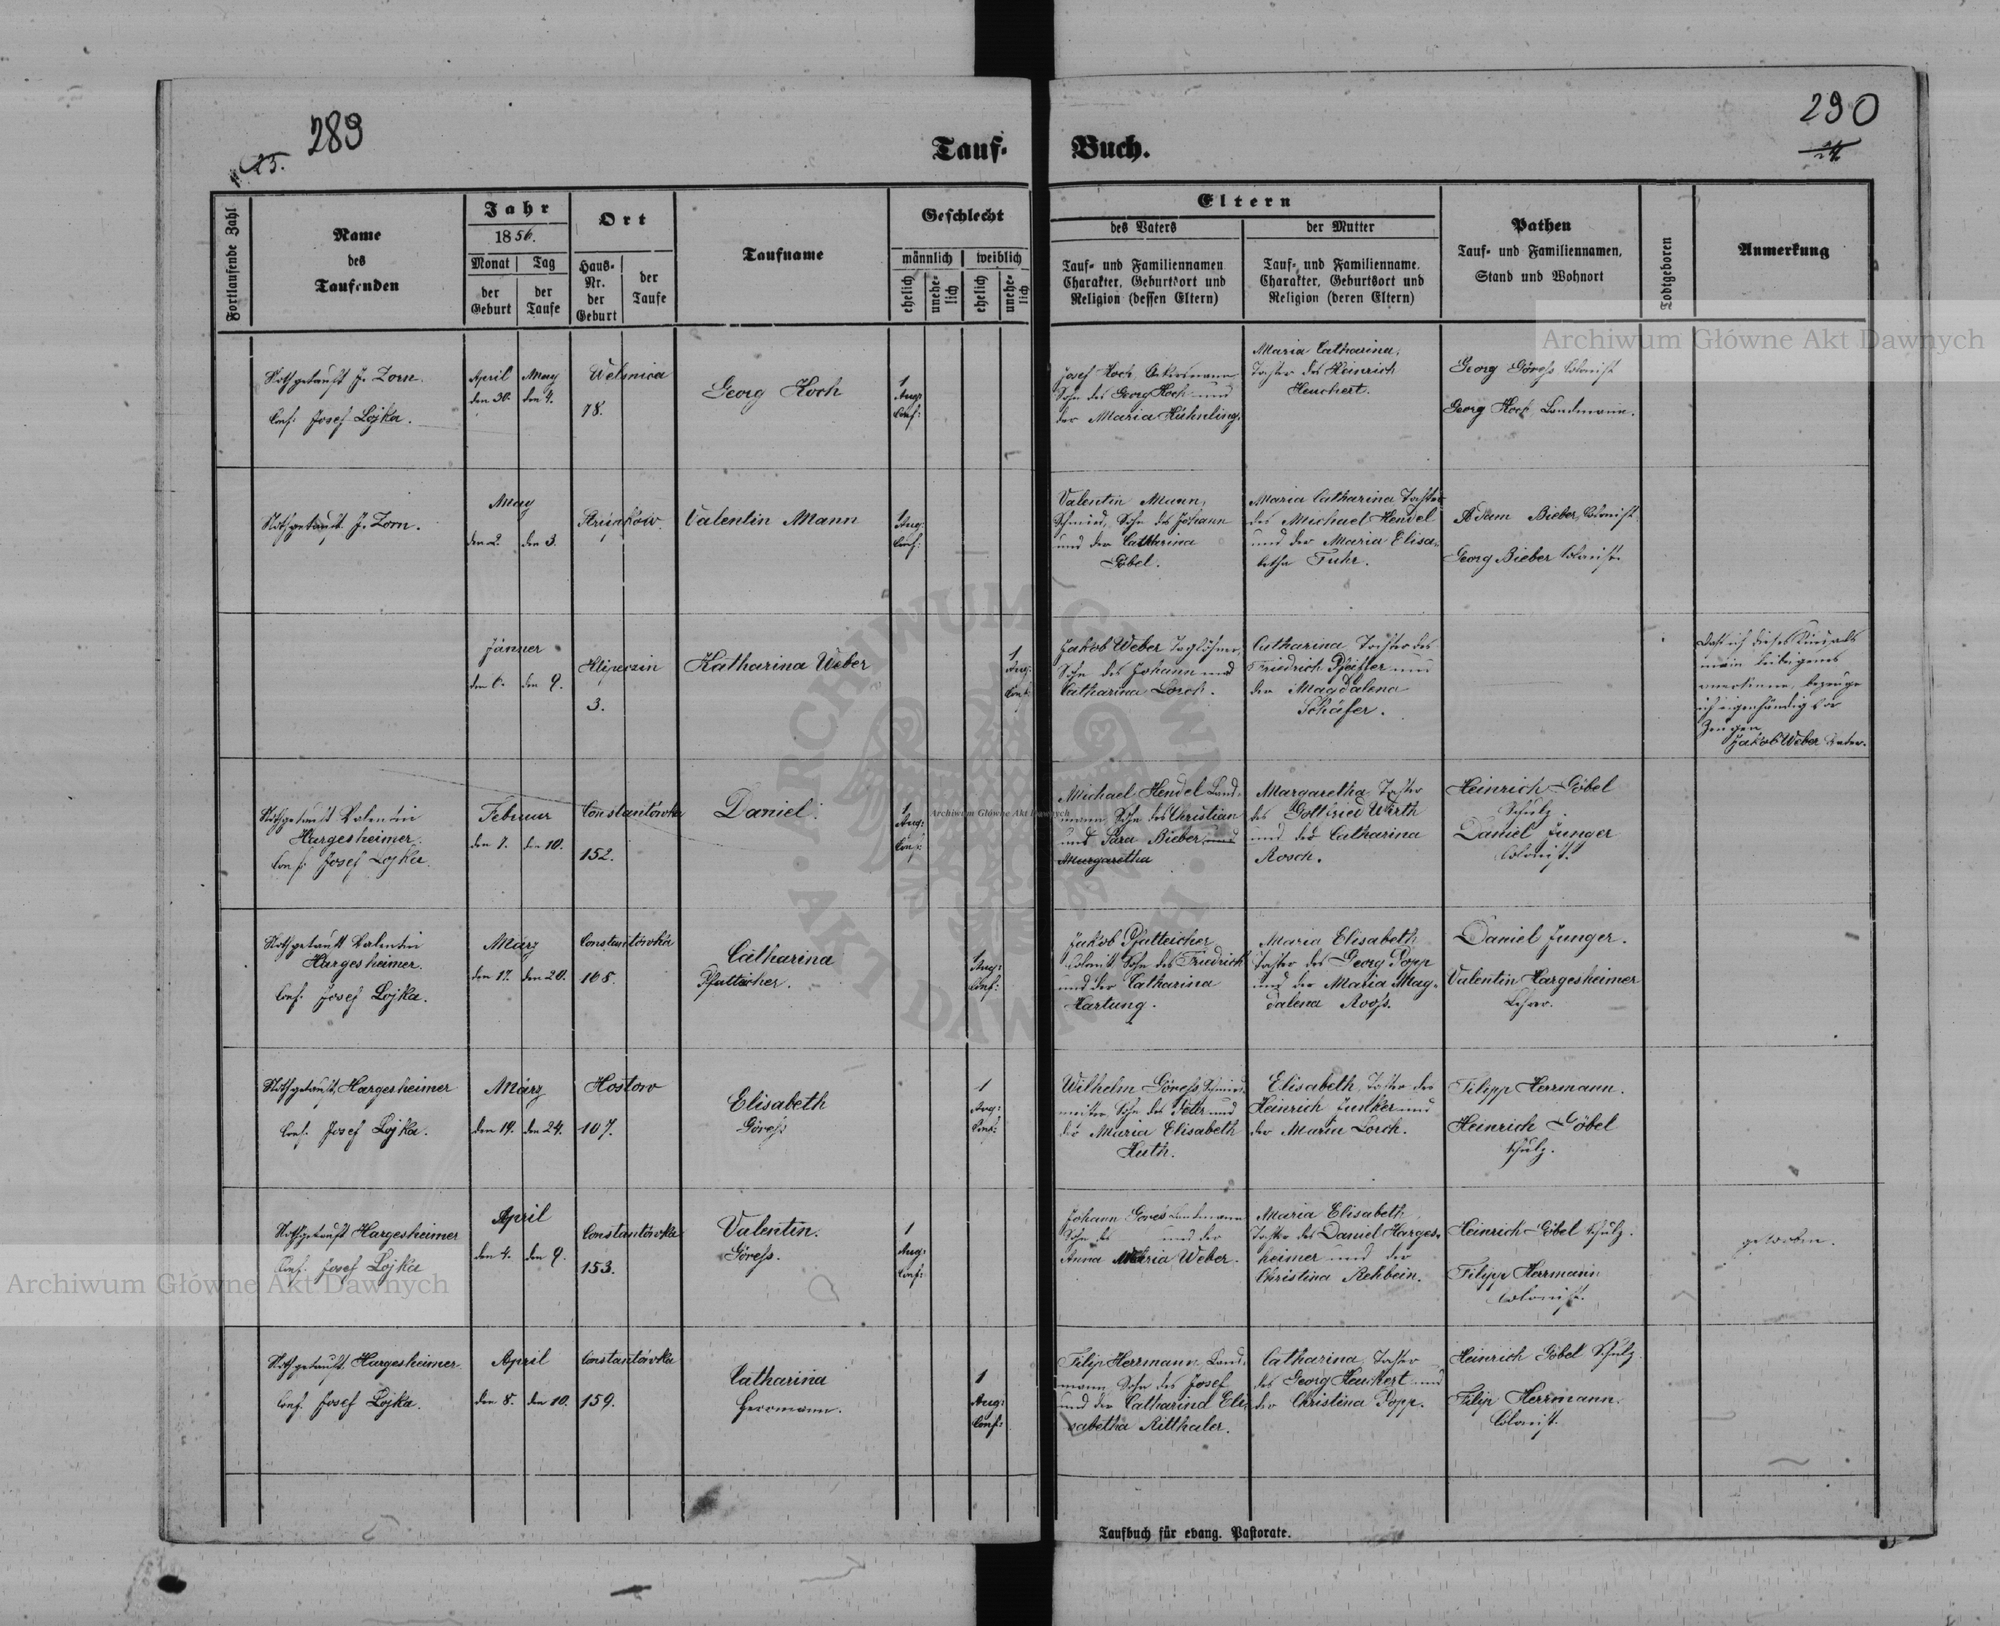 289
25.
290
Tauf-Buch.
Fortlaufende Zahl
Name
des
Taufenden
Jahr
1856.
Monat
Tag
der
Geburt
der
Taufe
Ort
Haus-
Nr.
der
Geburt
der
Taufe
Taufname
Geschlecht
männlich
weiblich
ehelich
unehe-
lich
ehelich
unehe-
lich
Eltern
des Vaters
der Mutter
Tauf- und Familiennamen
Charakter, Geburtsort und
Religion (dessen Eltern)
Tauf- und Familienname,
Charakter, Geburtsort und
Religion (deren Eltern)
Pathen
Tauf- und Familiennamen,
Stand und Wohnort
Todtgeboren
Anmerkung
Nothgetauft J. Zorn.
Conf. Josef Lojka.
April
den 30.
May
den 4.
Wełnica
78.
Georg Koch
1
Aug:
Conf:
Josef Koch, Ackersmann
Sohn des Georg Koch und
der Maria Hühnling.
Maria Catharina,
Tochter des Heinrich
Heuchert.
Georg Göress Colonist
Georg Koch, Landmann.
Nothgetauft J. Zorn.
May
den 2.
den 3.
Brunkow
Valentin Mann
1 Aug:
Conf:
Valentin Mann,
Schmied, Sohn des Johann
und der Catharina
Göbel.
Maria Catharina Tochter
des Michael Hendel
und der Maria Elisa-
betha Fuhr.
Adam Bieber, Colonist
Georg Bieber Colonist.
Jänner
den 6.
den 9.
Hliperzin
3.
Katharina Weber
1
Aug:
Conf:
Jakob Weber Taglöhner,
Sohn des Johann und
Catharina Lorch.
Catharina, Tochter des
Friedrich Pfeifler und
der Magdalena
Schäfer.
Daß ich dieses Kind als
mein leibeigenes
anerkenne, bezeuge
ich eigenhändig vor
Zeugen
Jakob Weber Vater.
Nothgetauft Valentin
Hargesheimer.
Conf. Josef Lojka.
Februar
den 7.
den 10.
Constantówka
152.
Daniel.
1
Aug:
Conf:
Michael Hendel Land-
mann Sohn des Christian
und Sara Bieber und
Margaretha
Margaretha, Tochter
des Gottfried Wirth
und der Catharina
Rosch.
Heinrich Göbel
Schulz.
Daniel Junger
Colonist.
Nothgetauft Valentin
Hargesheimer.
Conf. Josef Lojka.
März
den 17.
den 20.
Constantówka
168.
Catharina
Pfalteicher.
1
Aug:
Conf:
Jakob Pfalteicher
Colonist, Sohn des Friedrich
und der Catharina
Hartung.
Maria Elisabeth
Tochter des Georg Popp
und der Maria Mag-
dalena Roos.
Daniel Junger.
Valentin Hargesheimer
Lehrer.
Nothgetauft Hargesheimer
Conf. Josef Lojka.
März
den 19.
den 24.
Hostow
107.
Elisabeth
Göress
1
Aug:
Conf:
Wilhelm Göress Schmied-
meister, Sohn des Peter und
der Maria Elisabeth
Huth.
Elisabeth, Tochter des
Heinrich Junker und
der Maria Lorch.
Filipp Herrmann.
Heinrich Göbel
Schulz.
Nothgetauft Hargesheimer
Conf. Josef Lojka
April
den 4.
den 9.
Constantówka
153.
Valentin.
Göress.
1
Aug:
Conf:
Johann Göress Landmann
Sohn des und der
Anna Maria Weber.
Maria Elisabeth,
Tochter des Daniel Harges-
heimer und der
Christina Rehbein.
Heinrich Göbel Schulz.
Filipp Herrmann
Colonist.
gestorben.
Nothgetauft Hargesheimer.
Conf. Josef Lojka.
April
den 8.
den 10.
Constantówka
159.
Catharina
Herrmann.
1
Aug:
Conf:
Filip Herrmann, Land-
mann, Sohn des Josef
und der Catharina Eli-
sabetha Rilthaler.
Catharina, Tochter
des Georg Heuchert und
der Christina Popp.
Heinrich Göbel Schulz.
Filip Herrmann.
Colonist.
Taufbuch für evang. Pastorate.
Archiwum Główne Akt Dawnych
Archiwum Główne Akt Dawnych
Archiwum Główne Akt Dawnych